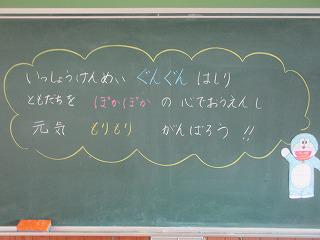 いっしょうけんめい ぐんぐん はしり
ともだちを ぽかぽか の 心でおうえんし
元気 もりもり がんばろう!!